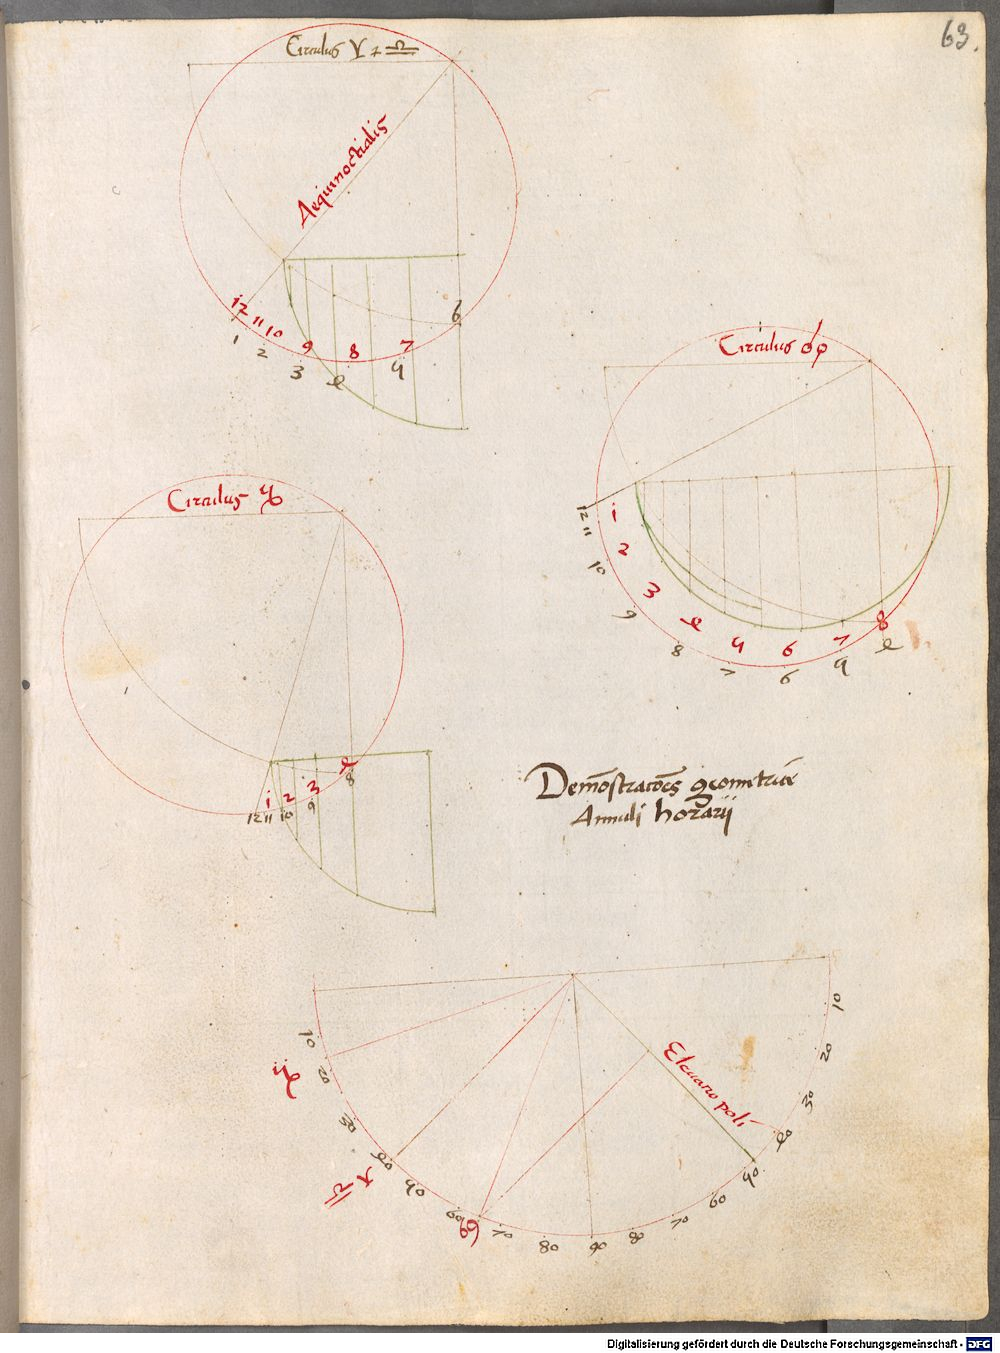 63.
Circulus ♈ & ♎
Aequinoctialis
12 11 10 9 8 7 6
1 2 3 4 5
Circulus ♋
1 2 3 4 5 6 7 8
12 11 10 9 8 7 6 5 4
Circulus ♑
1 2 3 4
12 11 10 9 8
Demo̅strato̅es geometrice
Annuli horarij
Eleuatio poli
10 20 30 40 50 60 70 80 90 80 70 60 50 40 30 20 10
♑
♎ ♈
♋
Digitalisierung gefördert durch die Deutsche Forschungsgemeinschaft - DFG